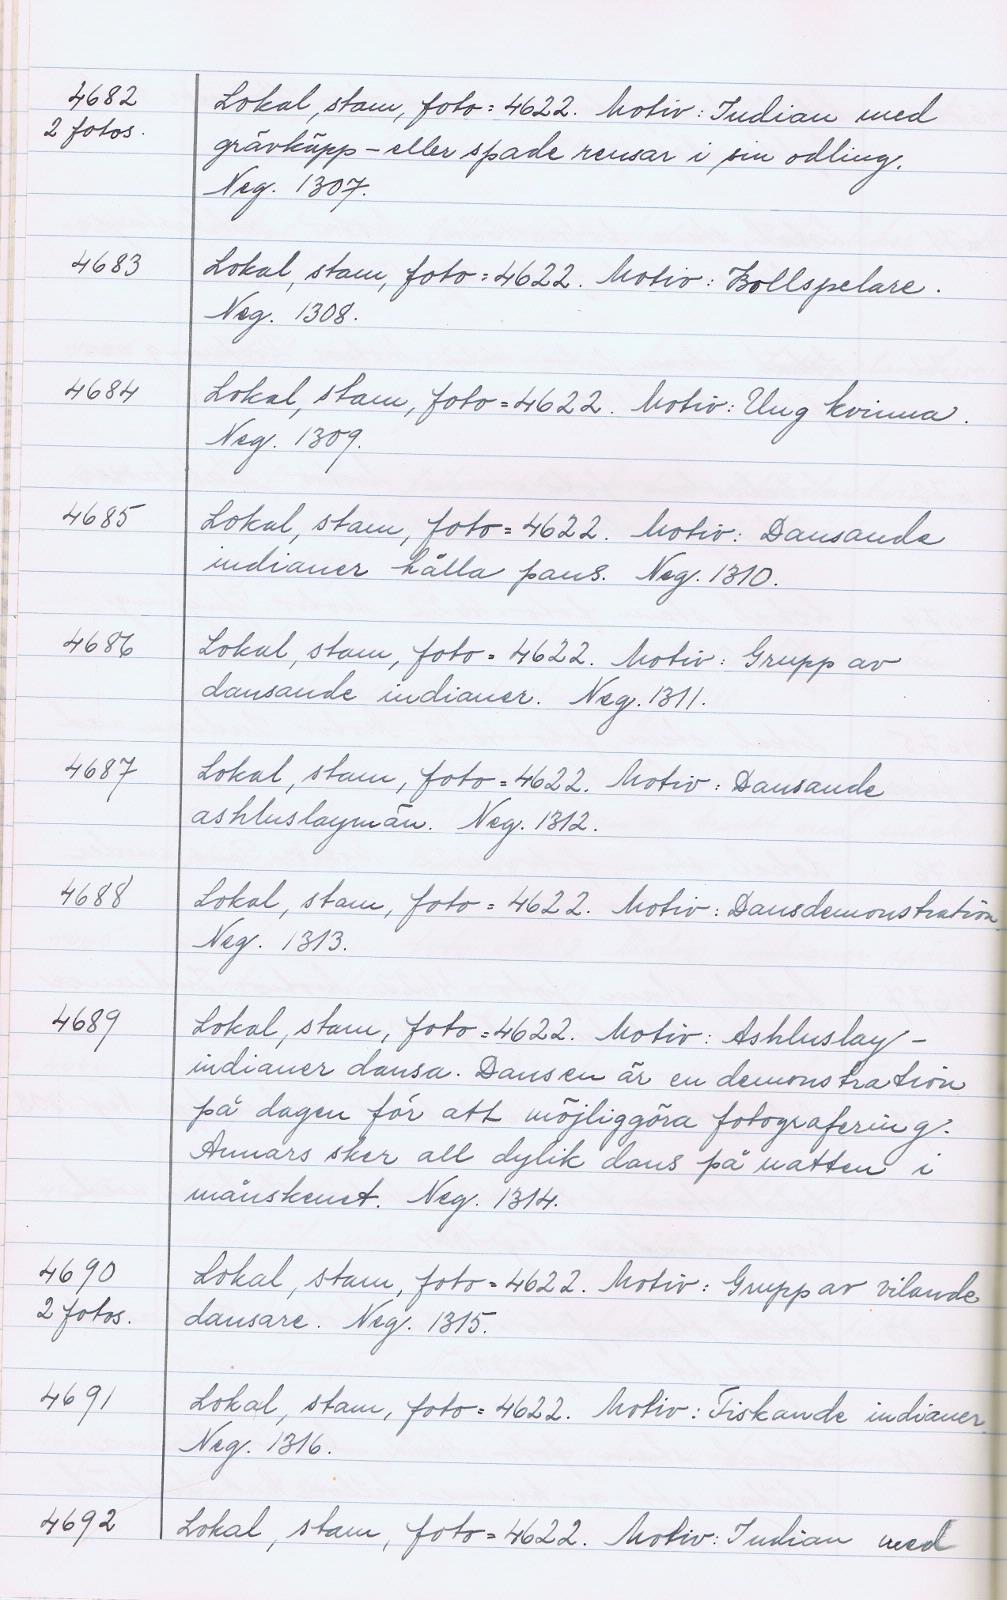 4682 Lokal, stam, foto = 4622. Motiv: Indian med
2 fotos. grävkäpp - eller spade rensar i sin odling.
Neg. 1307.
4683 Lokal, stam, foto = 4622. Motiv: Bollspelare.
Neg. 1308.
4684 Lokal, stam, foto = 4622. Motiv: Ung kvinna.
Neg. 1309.
4685 Lokal, stam, foto = 4622. Motiv: Dansande
indianer hålla paus. Neg. 1310.
4686 Lokal, stam, foto = 4622. Motiv: Grupp av
dansande indianer. Neg. 1311.
4687 Lokal, stam, foto = 4622. Motiv: Dansande
ashluslaymän. Neg. 1312.
4688 Lokal, stam, foto = 4622. Motiv: Dansdemonstration.
Neg. 1313.
4689 Lokal, stam, foto = 4622. Motiv: Ashluslay-
indianer dansa. Dansen är en demonstration
på dagen för att möjliggöra fotografering.
Annars sker all dylik dans på natten i
månskenet. Neg. 1314.
4690 Lokal, stam, foto = 4622. Motiv: Grupp av vilande
2 fotos. dansare. Neg. 1315.
4691 Lokal, stam, foto = 4622. Motiv: Fiskande indianer.
Neg. 1316.
4692 Lokal, stam, foto = 4622. Motiv: Indian med